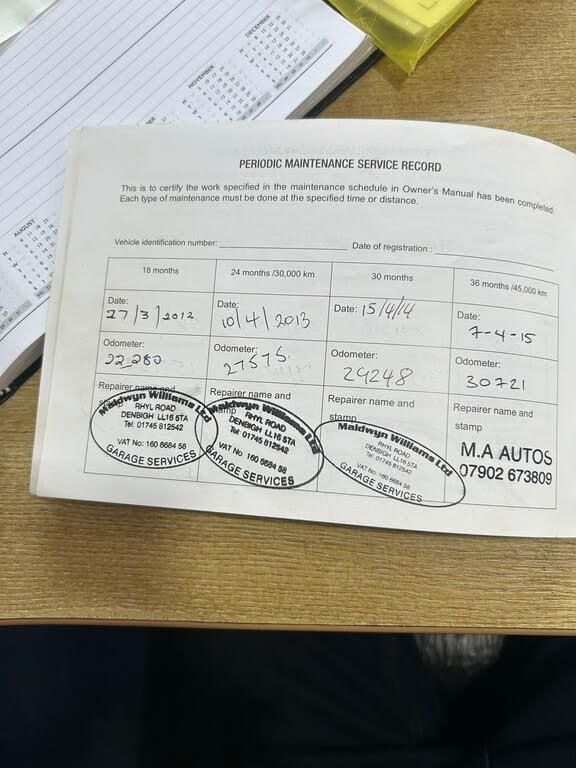 DECEMBER
NOVEMBER
AUGUST
PERIODIC MAINTENANCE SERVICE RECORD
This is to certify the work specified in the maintenance schedule in Owner's Manual has been completed.
Each type of maintenance must be done at the specified time or distance.
Vehicle identification number:
Date of registration :
18 months
24 months /30,000 km
30 months
36 months /45,000 km
Date:
27/3/2012
Date:
10/4/2013
Date: 15/4/14
Date:
7-4-15
Odometer:
22280
Odometer:
27575
Odometer:
29248
Odometer:
30721
Repairer name and
Maldwyn Williams Ltd
RHYL ROAD
DENBIGH LL16 5TA
Tel: 01745 812542
VAT No: 160 6684 58
GARAGE SERVICES
Repairer name and
stamp
Maldwyn Williams Ltd
RHYL ROAD
DENBIGH LL16 5TA
Tel: 01745 812542
VAT No: 160 6684 58
GARAGE SERVICES
Repairer name and
stamp
Maldwyn Williams Ltd
RHYL ROAD
DENBIGH LL16 5TA
Tel: 01745 812542
VAT No: 160 6684 58
GARAGE SERVICES
Repairer name and
stamp
M.A AUTOS
07902 673809